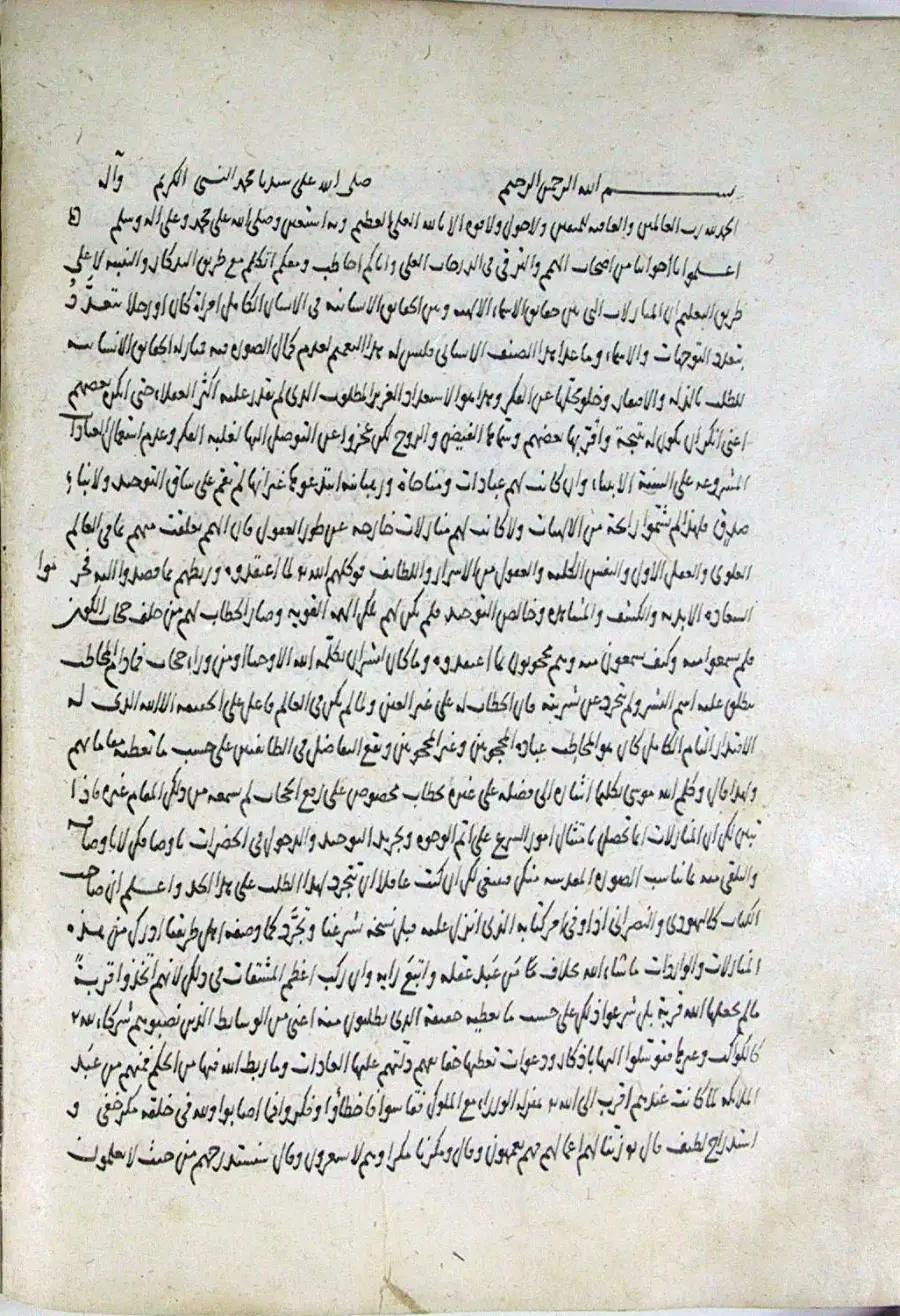 بسم الله الرحمن الرحيم صلى الله على سيدنا محمد النبي الكريم وآله
الحمد لله رب العالمين والعاقبة للمتقين ولا حول ولا قوة الا بالله العلي العظيم وبه استعين وصلى الله على محمد وعلى اله وسلم
اعلموا يا اخواننا من اصحاب الهمم والترقي في الدرجات العلى واياكم اخاطب ومعكم اتكلم مع طريق التذكار والتنبيه لا على
طريق التعليم ان المنازلات التي بين حقائق الاسماء الالهية وبين الحقائق الانسانية في الانسان الكامل امراة كان او رجلا تتعدد
بتعدد التوجهات والاسماء وما عدا هذا الصنف الانساني فليس له هذا التعميم لعدم كمال الصورة فيه فمنازلة الحقائق الانسانية
للطلب بالذلة والافتقار وخلو محلها عن الفكر وهذا هو الاستعداد القريب المطلوب الذي لم يقدر عليه أكثر العقلاء حتى انكره بعضهم
اعني انكر ان يكون له نتيجة وأقر بها بعضهم وسماها الفيض والروح لكن عجزوا عن التوصل اليها لغلبة الفكر وعدم استعمال العبادات
المشروعة على السنة الانبياء وان كانت لهم عبادات ومناجاة ورهبانية ابتدعوها غير انها لم تقم على ساق التوحيد ولا نبا
صدق فلهذا لم يشموا رائحة من الالهيات ولا كانت لهم منازلات خارجة عن طور العقول فان الهمم تعلقت منهم بما في العالم
العلوي والعقل الأول والنفس الكلية والعقول من الأسرار واللطائف فوكلهم الله تع لما اعتقدوه وربطهم بما قصدوا اليه فحرموا
السعادة الابدية والكشف والمشاهدة وخالص التوحيد فلم يكن لهم تلك الهمة القوية وصار الخطاب لهم من خلف حجاب الكون
فلم يسمعوا منه وكيف يسمعون منه وهم محجوبون بما اعتقدوه وما كان لبشر ان يكلمه الله الا وحيا او من وراء حجاب فما دام المخاطب
يطلق عليه اسم البشر ولم يتجرد عن بشريته فان الخطاب له على غير العين ولما لم يكن في العالم فاعل على الحقيقة الا الله الذي له
الاقتدار التام الكامل كان هو المخاطب عباده المحجوبين وغير المحجوبين ووقع التفاضل في الطائفتين على حسب ما تعطيه مقاماتهم
ولهذا قال وكلم الله موسى تكليما اشارة الى فضله على غيره بخطاب مخصوص على رفع الحجاب لم يسمعه من ذلك المقام غيره فاذا
تبين لك ان المنازلات انما تحصل بامتثال امور الشرع على اتم الوجوه وتجريد التوحيد والدخول في الحضرات باوصافك لا باوصافه
والتلقي منه بما يناسب الصورة المقدسة منك فينبغي لك ان كنت عاقلا ان تتجرد لهذا الطلب على هذا الحد واعلم ان صاحب
الكتاب كاليهودي والنصراني اذا وفى امر كتابه الذي انزل عليه قبل نسخه بشرعنا وتجرد كما وصفه اهل طريقنا ادرك من هذه
المنازلات والواردات ما شاء الله بخلاف من عبد عقله واتبع رايه وان ركب اعظم المشقات في ذلك لانهم اتخذوا قربة
ما لم يجعلها الله قربة بل شرعوا ذلك على حسب ما تعطيه حقيقة الذي يطلبون منه اعني من الوسايط الذين نصبوهم شركاء لله تع
كالكواكب وغيرها فتوسلوا اليها باذكار ودعوات تعطيها حقايقهم دلتهم عليها العادات وما ربط الله فيها من الحكم فمنهم من عبد
الملائكة لما كانت عندهم اقرب الى الله تع بمنزلة الوزراء مع الملوك فقاسوا فاخطأوا وفكروا فما اصابوا ولله في خلقه مكر خفي و
استدراج لطيف قال تع زينا لهم اعمالهم فهم يعمهون وقال ومكرنا مكرا وهم لا يشعرون وقال سنستدرجهم من حيث لا يعلمون